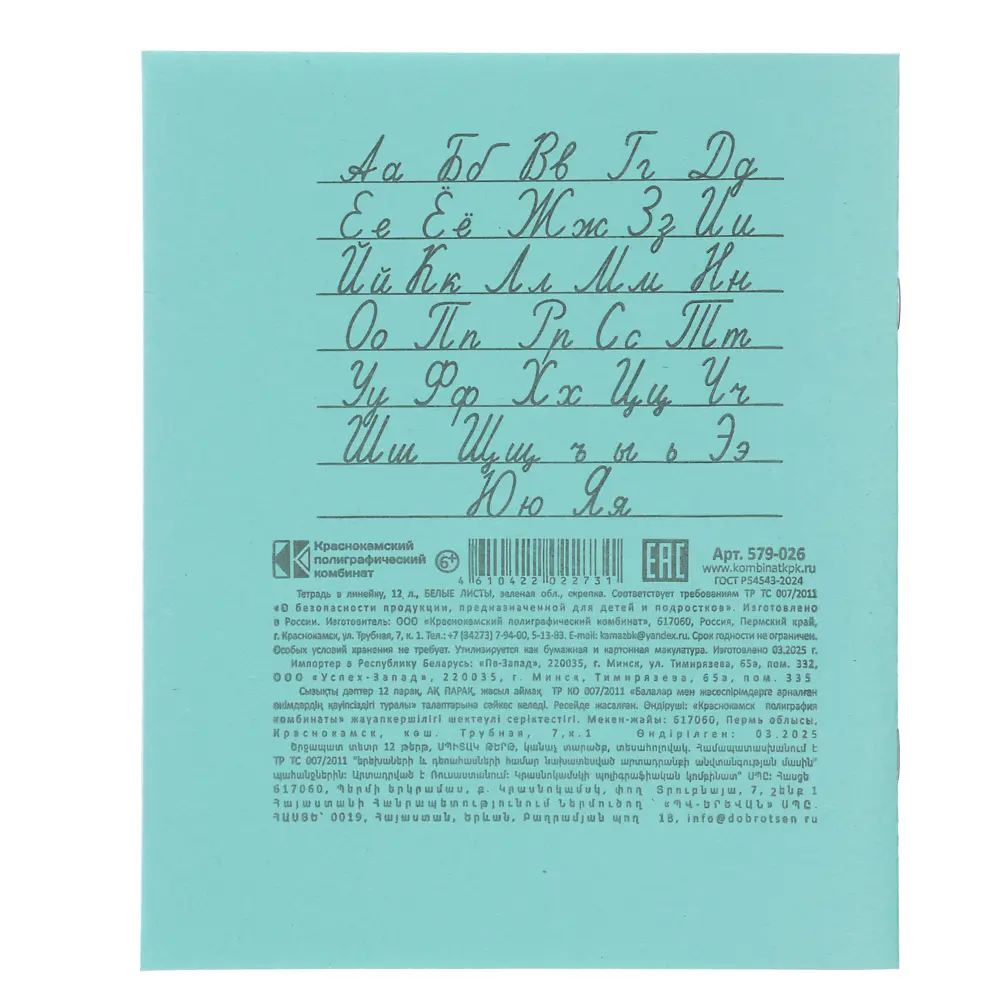 Аа Бб Вв Гг Дд
Ее Ёё Жж Зз Ии
Йй Кк Лл Мм Нн
Оо Пп Рр Сс Тт
Уу Фф Хх Цц Чч
Шш Щщ ъ ы ь Ээ
Юю Яя
Краснокамский
полиграфический
комбинат
6+
4 610422 022731
EAC
Арт. 579-026
www.kombinatkpk.ru
ГОСТ Р54543-2024
Тетрадь в линейку, 12 л., БЕЛЫЕ ЛИСТЫ, зеленая обл., скрепка. Соответствует требованиям ТР ТС 007/2011
«О безопасности продукции, предназначенной для детей и подростков». Изготовлено
в России. Изготовитель: ООО «Краснокамский полиграфический комбинат», 617060, Россия, Пермский край,
г. Краснокамск, ул. Трубная, 7, к. 1. Тел.: +7 (84273) 7-94-00, 5-13-83. E-mail: kamazbk@yandex.ru. Срок годности не ограничен.
Особых условий хранения не требует. Утилизируется как бумажная и картонная макулатура. Изготовлено 03.2025 г.
Импортер в Республику Беларусь: «Пв-Запад», 220035, г. Минск, ул. Тимирязева, 65а, пом. 332,
ООО «Успех-Запад», 220035, г. Минск, Тимирязева, 65а, пом. 335
Сызықты дәптер 12 парақ, АҚ ПАРАҚ, жасыл аймақ ТР КО 007/2011 «Балалар мен жасөспірімдерге арналған
өнімдердің қауіпсіздігі туралы» талаптарына сәйкес келеді. Ресейде жасалған. Өндіруші: «Краснокамск полиграфия
комбинаты» жауапкершілігі шектеулі серіктестігі. Мекен-жайы: 617060, Пермь облысы,
Краснокамск, көш. Трубная, 7, к.1 Өндірілген: 03.2025
Երջապատ տետր 12 թերթ, ՍՊԻՏԱԿ ԹԵՐԹ, կանաչ տարածք, տեսահոլովակ. Համապատասխանում է
ТР ТС 007/2011 "երեխաների և դեռահասների համար նախատեսված արտադրանքի անվտանգության մասին"
պահանջներին: Արտադրված է Ռուսաստանում: Կրասնոկամսկի պոլիգրաֆիական կոմբինատ" ՍՊԸ: Հասցե
617060, Պերմի երկրամաս, ք. Կրասնոկամսկ, փող Տրուբնայա, 7, շենք 1
Հայաստանի Հանրապետությունում Ներմուծող ՝ «ՊՎ-ԵՐԵՎԱՆ» ՍՊԸ.
ՀԱՍՑԵ՝ 0019, Հայաստան, Երևան, Բաղրամյան պող 18, info@dobrotsen ru